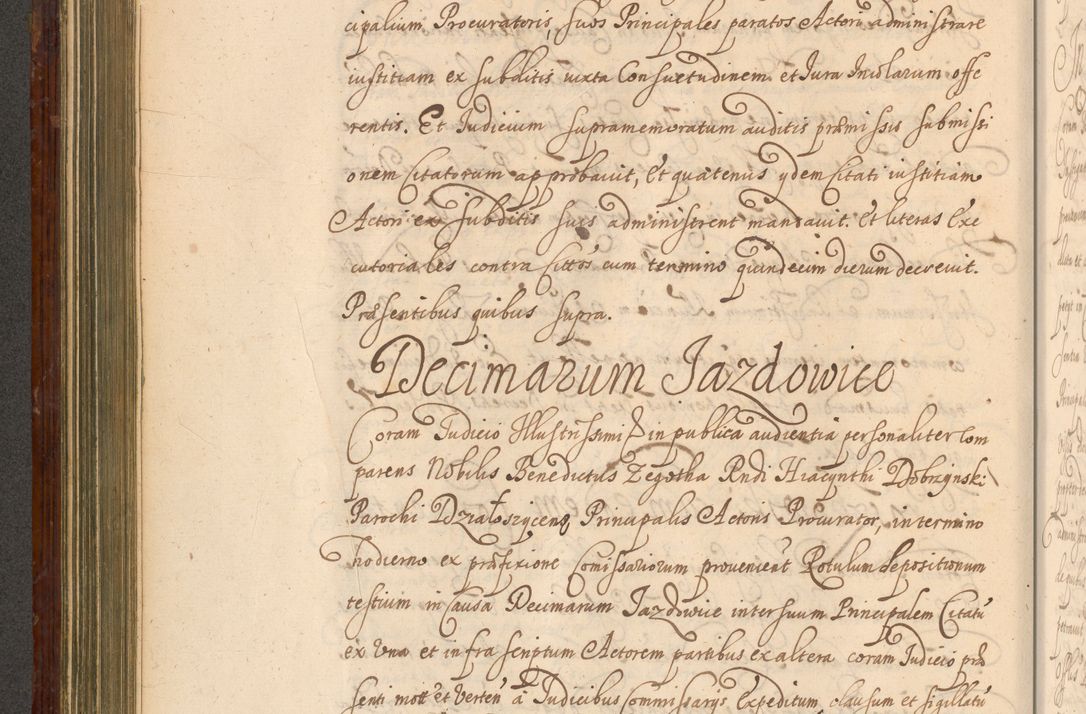 cipalium Procuratoris, suos Principales paratos Actori administrare
iustitiam ex subditis iuxta Consuetudinem et Jura Incolarum offe
rentis. Et Judicium supramemoratum auditis præmissis submissi
onem Citatorum approbauit, Et quatenus ydem Citati iustitiam
Actori ex subditis suis administrent mandauit. Et literas Exe
cutoriales contra Cittos cum termino quindecim dierum decreuit.
Præsentibus quibus supra.
Decimarum Jazdowice
Coram Judicio Illustrissimi & in publica audientia personaliter Com
parens Nobilis Benedictus Zegotha Rndi Hiacynthi Dobrzynski
Parochi Działoszycens Principalis Actoris Procurator, in termino
hodierno ex præfixione Comissariorum prouenient Rotulum depositionum
testium in Causa Decimarum Jazdowice inter suum Principalem Citatu
ex Vna et infra scriptum Actorem partibus ex altera coram Judicio præ
senti mott et Verten a Judicibus Commissarys Expeditum, clausum et sigillatu